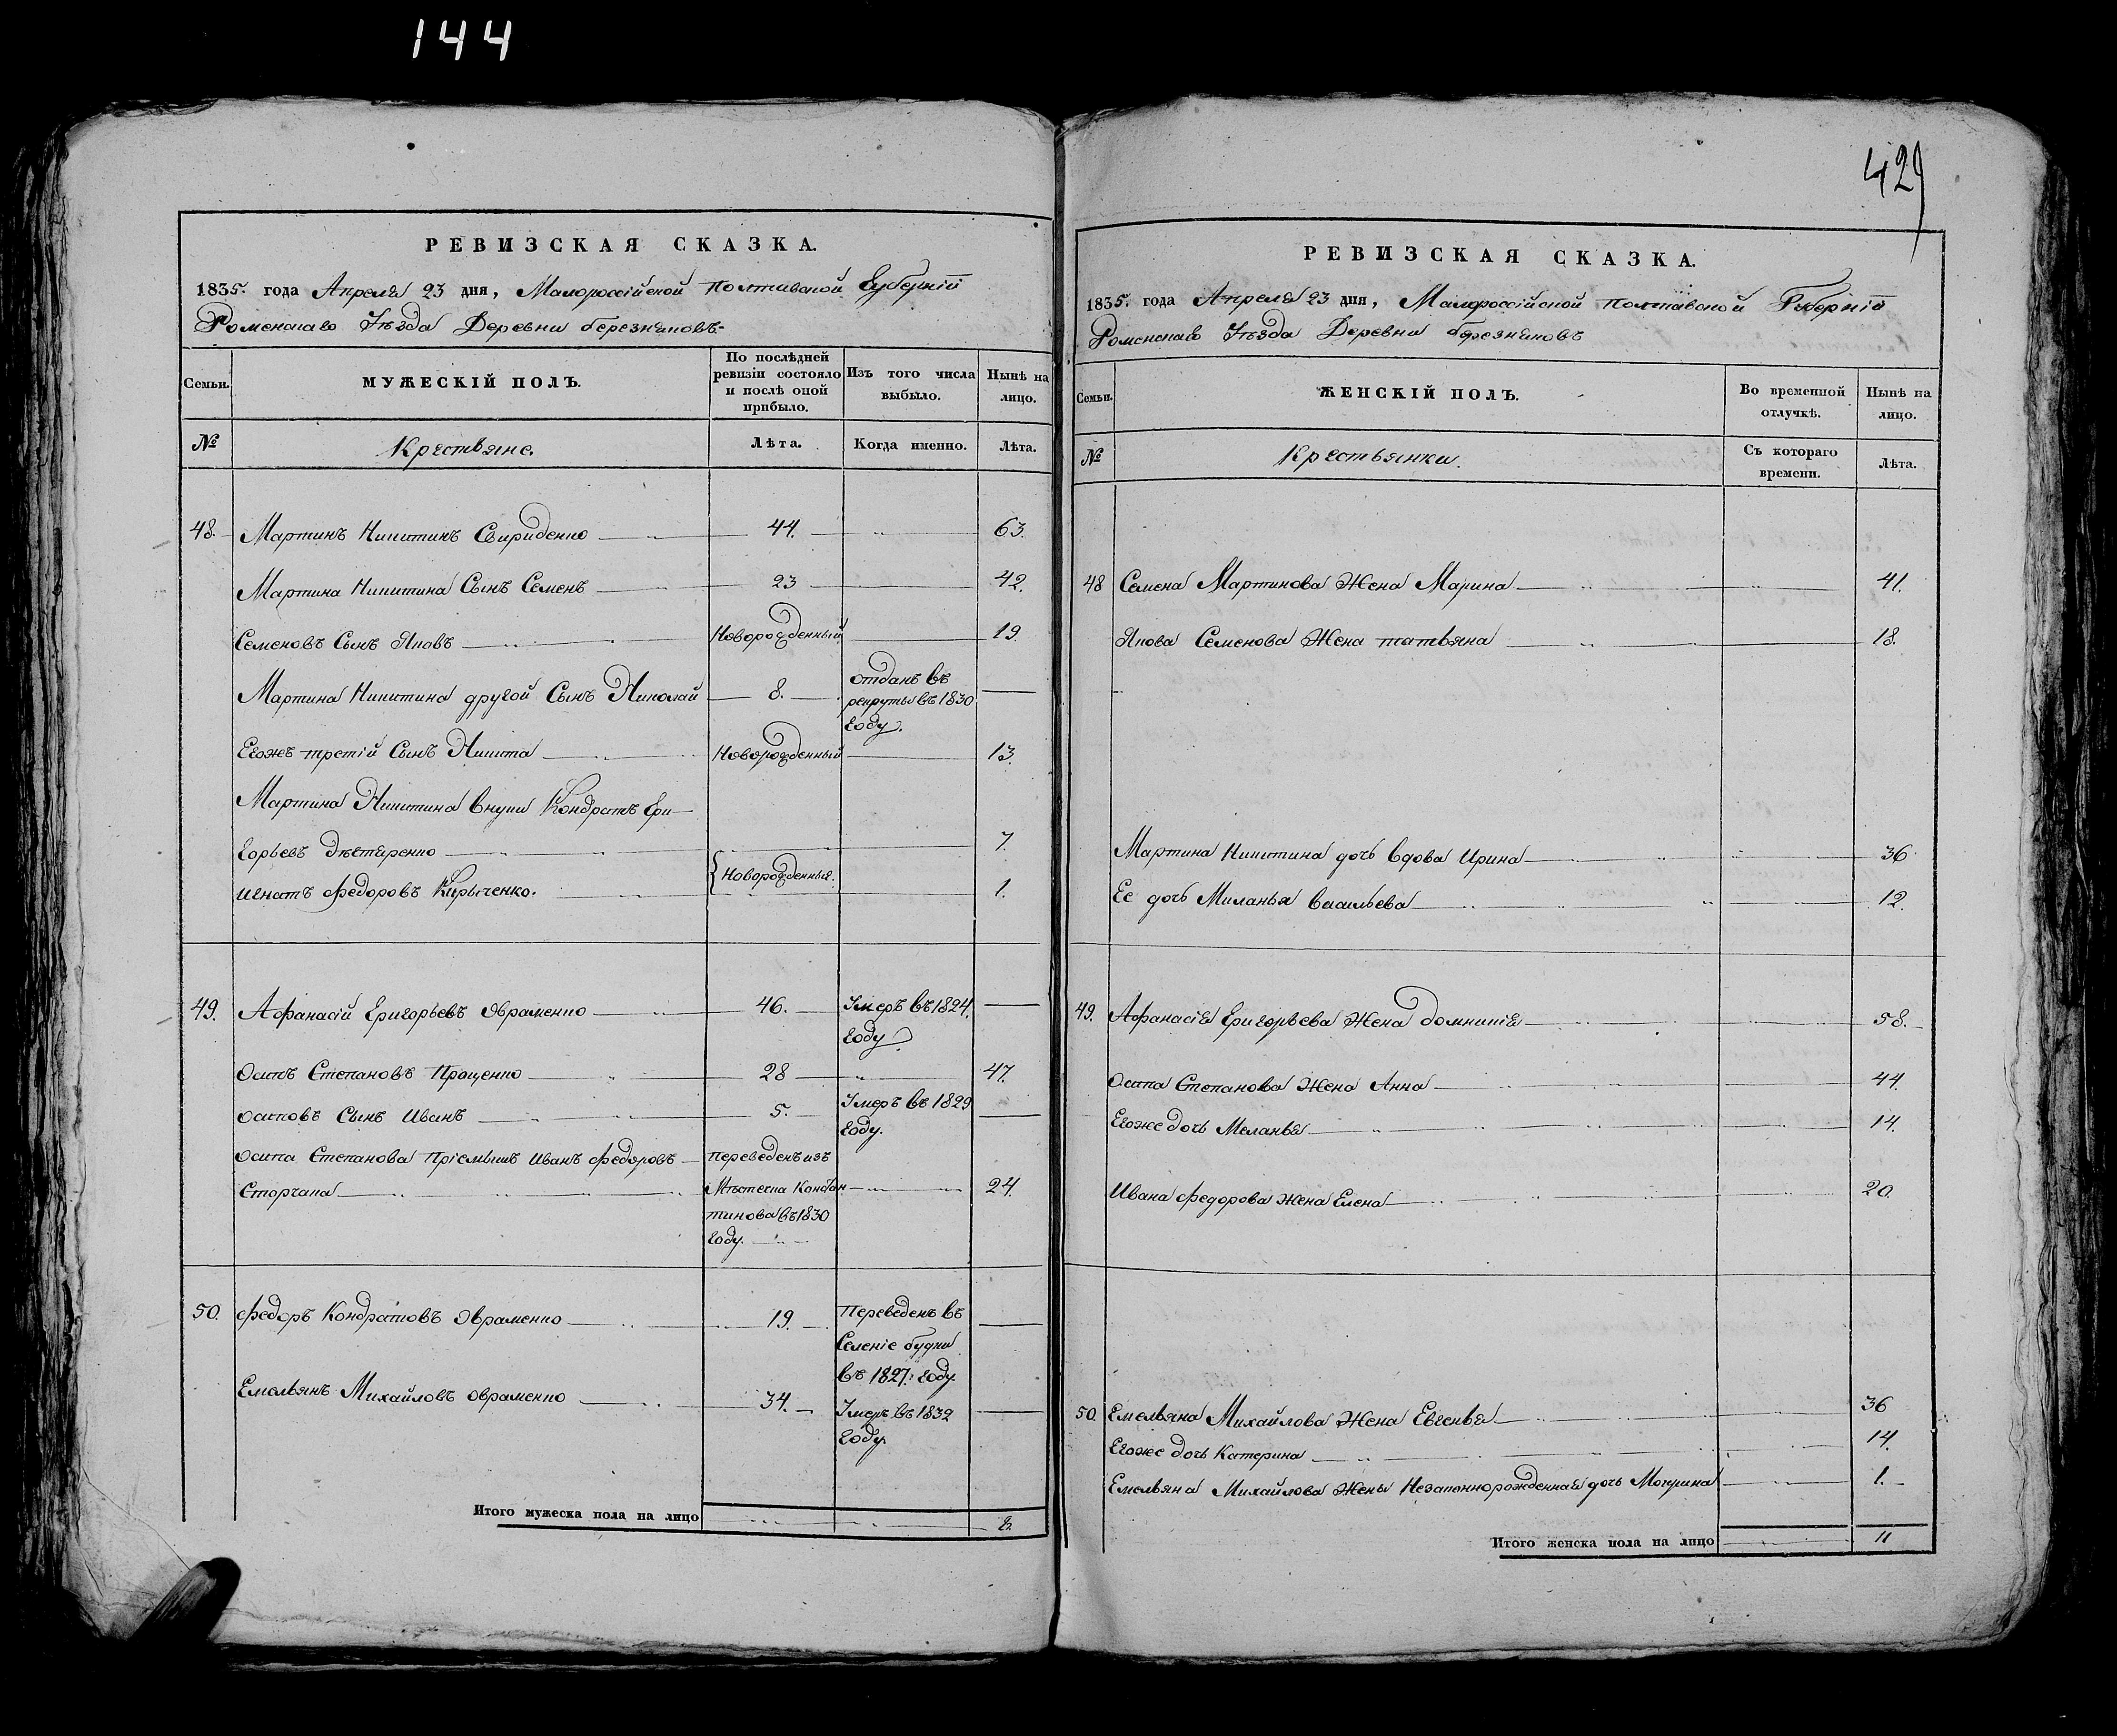 144
429
РЕВИЗСКАЯ СКАЗКА.
1835. года Апреля 23 дня, Малороссійской Полтавской Губерніи
Роменскаго Уѣзда Деревни березняковъ.
Семьи.
МУЖЕСКІЙ ПОЛЪ.
По послѣдней ревизіи состояло и послѣ оной прибыло.
Изъ того числа выбыло.
Нынѣ на лицо.
№
Крестьяне.
Лѣта.
Когда именно.
Лѣта.
48. Мартинъ Никитинъ Свириденко 44. 63.
Мартина Никитина Сынъ Семенъ 23 42.
Семеновъ Сынъ Яковъ Новорожденный 19.
Мартина Никитина другой Сынъ Николай 8. отданъ въ
рекруты въ 1830
году.
Егожъ третій Сынъ Никита Новорожденный 13.
Мартина Никитина внуки Кондратъ Гри-
горьевъ 7.
Игнатъ Федоровъ Кириченко. Новорожденныя. 1.
49. Афанасій Григорьевъ Овраменко 46. Умеръ въ 1824.
году.
Осипъ Степановъ Проценко 28 47.
Осиповъ Сынъ Иванъ 5. Умеръ въ 1829
году.
Осипа Степанова Пріемышъ Иванъ Федоровъ Переведенъ изъ
Сторчака Мѣстечка Констан 24.
тинова въ 1830
году.
50. Федоръ Кондратовъ Овраменко 19. Переведенъ въ
Селеніе будки
въ 1827: году.
Емельянъ Михайловъ Овраменко 34. Умеръ въ 1832
году.
Итого мужеска пола на лицо 8.
РЕВИЗСКАЯ СКАЗКА.
1835. года Апреля 23 дня, Малороссійской Полтавской Губерніи
Роменскаго Уѣзда Деревни березняковъ
Семьи.
ЖЕНСКІЙ ПОЛЪ.
Во временной отлучкѣ.
Нынѣ на лицо.
№
Крестьянки.
Съ котораго времени.
Лѣта.
48 Семена Мартинова Жена Марина 41.
Якова Семенова Жена татьяна 18.
Мартина Никитина дочь вдова Ирина 36
Ее дочь Миланья васильева 12.
49. Афанасія Григорьева Жена домникія 58.
Осипа Степанова Жена Анна 44.
Егоже дочь Меланья 14.
Ивана Федорова жена Елена 20.
50. Емельяна Михайлова Жена Евгенья 36
Егоже дочь Катерина 14.
Емельяна Михайлова Жены Незаконнорожденная дочь 1.
Итого женска пола на лицо 11